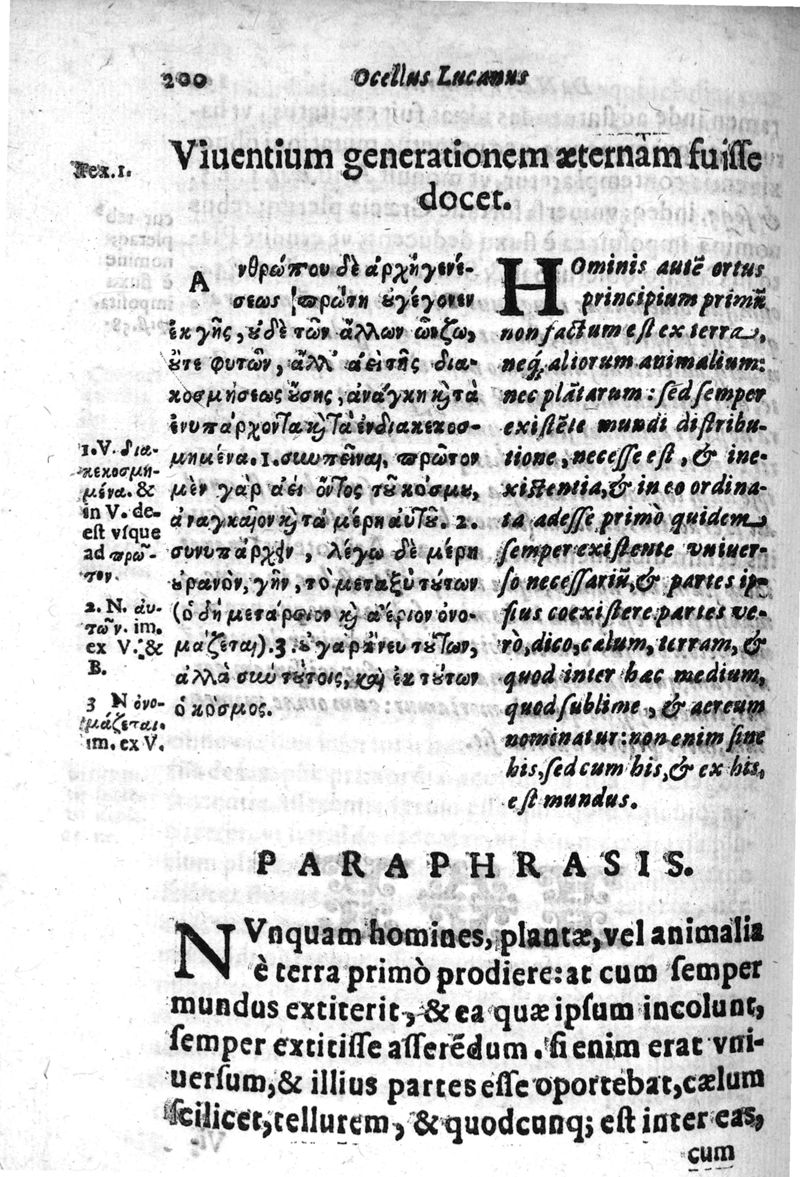 200
Ocellus Lucanus
Viuentium generationem æternam fuisse
docet.
Tex. 1.
Ανθρώπου δὲ ἀρχὴ γενέ-
σεως πρώτη ȣ γέγονεν
ἐκ γῆς, ȣδὲ τῶν ἄλλων ζώων,
ȣτε φυτῶν, ἀλλ' ἀεὶ τῆς δια-
κοσμήσεως ȣσης, ἀνάγκη κ̀ τὰ
ἐνυπάρχοντα κ̀ τὰ ἐνδιακεκοσ-
μημένα. 1. συνεῖναι, πρῶτον
μὲν γὰρ ἀεὶ ὄντος τȣ κόσμȣ,
ἀναγκαῖον κ̀ τὰ μέρη αὐτȣ͂. 2.
συνυπάρχειν, λέγω δὲ μέρη
ȣρανὸν, γῆν, τὸ μεταξὺ τȣ́των
(ὁ δὴ μετάρσιον κ̀ ἀέριον ὀνο-
μάζεται). 3. ȣ γὰρ ἄνευ τȣ́των,
ἀλλὰ σὺν τȣ́τοις, καὶ ἐκ τȣ́των
ὁ κόσμος.
1. V. δια-
κεκοσμη-
μένα. &
in V. de-
est vsque
ad πρῶ-
τον.
2. N. αυ-
τῶν. im.
ex V. &
B.
3 N ὀνο-
μάζεται.
im. ex V.
HOminis autē ortus
principium primū
non factum est ex terra,
neq; aliorum animalium:
nec plātarum: sed semper
existēte mundi distribu-
tione, necesse est, & ine-
xistentia, & in eo ordina-
ta adesse primò quidem
semper existente vniuer-
so necessariū, & partes ip-
sius coexistere partes ve-
rò, dico, cælum, terram, &
quod inter hæc medium,
quod sublime, & aereum
nominatur: non enim sine
his, sed cum his, & ex his,
est mundus.
PARAPHRASIS.
NVnquam homines, plantæ, vel animalia
è terra primò prodiere: at cum semper
mundus extiterit, & ea quæ ipsum incolunt,
semper extitisse asserēdum. si enim erat vni-
uersum, & illius partes esse oportebat, cælum
scilicet, tellurem, & quodcunq; est inter eas,
cum